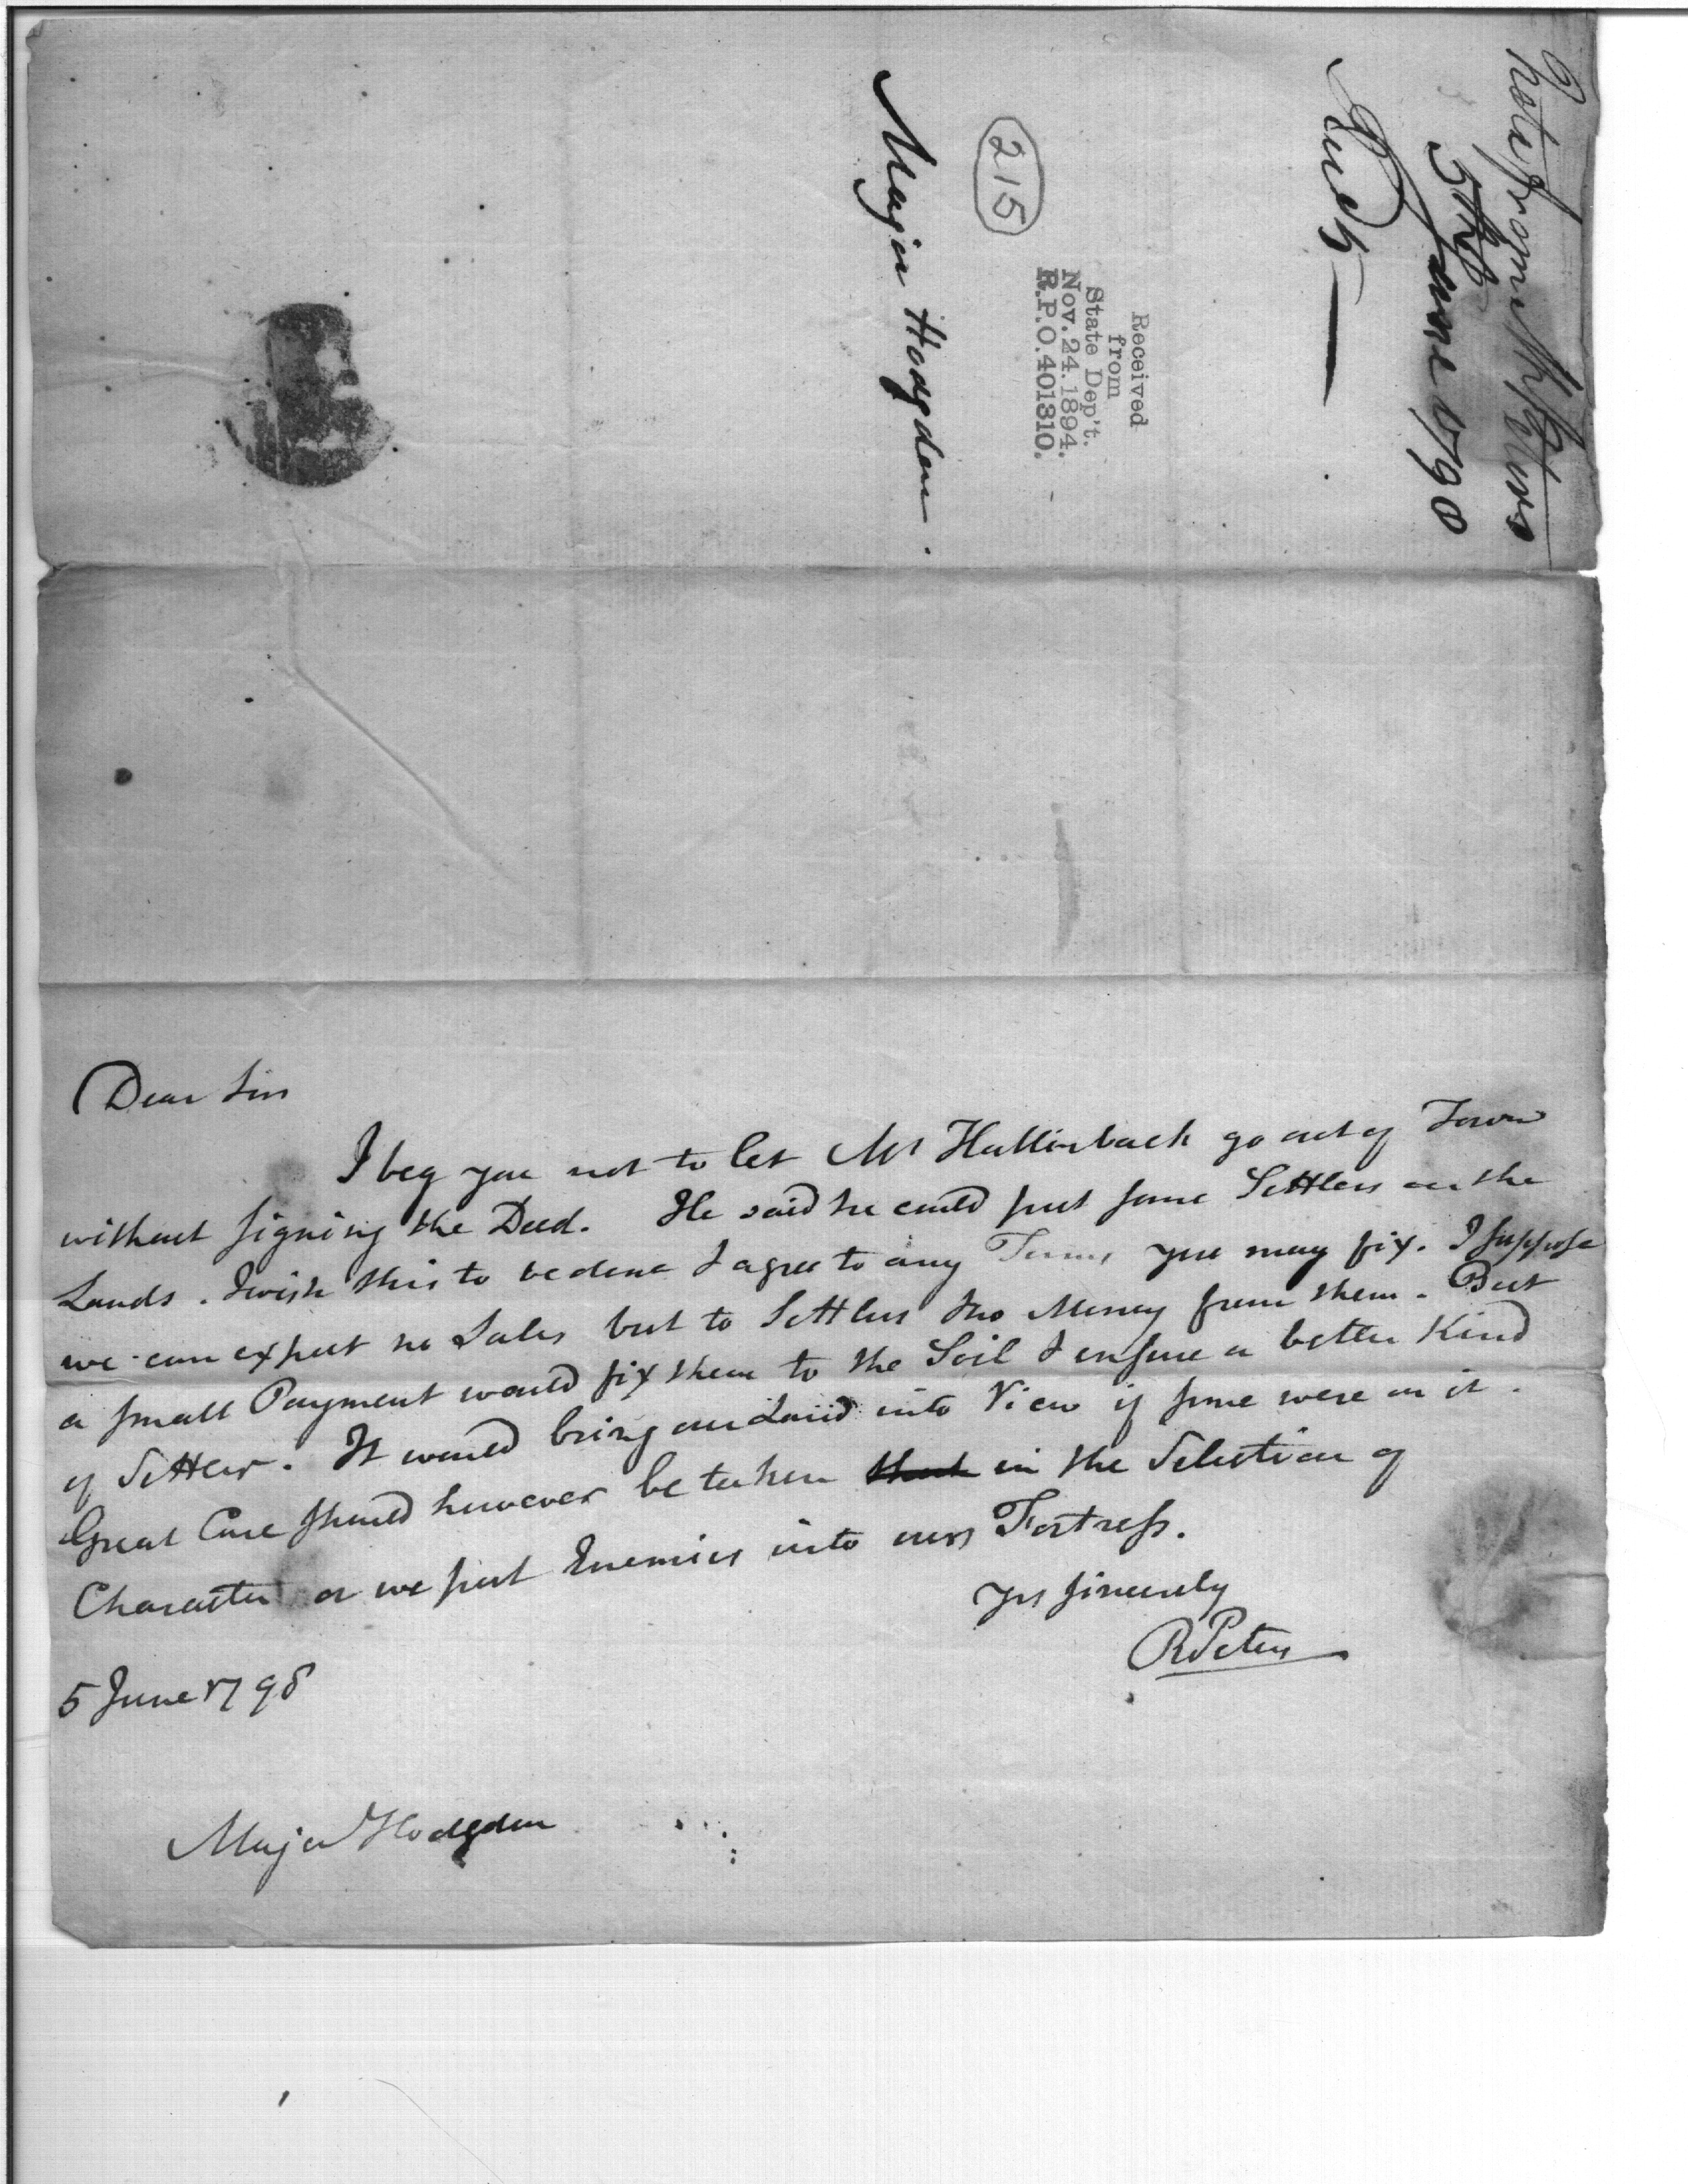 Note from Mr Peters
5th June 1798
Major Hodgdon.
215
Received
from
State Dep't.
Nov. 24. 1894.
R.P.O. 401310.
Dear Sir
I beg you not to let Mr Hollinback go out of Town
without signing the Deed. He said he could put some Settlers on the
Lands. I wish this to be done & agree to any Terms you may fix. I suppose
we can expect no Sales but to Settlers & no Money from them. But
a small Payment would fix them to the Soil & ensure a better Kind
of Settler. It would bring our Land into View if some were on it.
Great Care should however be taken in the Selection of
Character or we put Enemies into our Fortress.
Yrs sincerely
R Peters
5 June 1798
Major Hodgdon